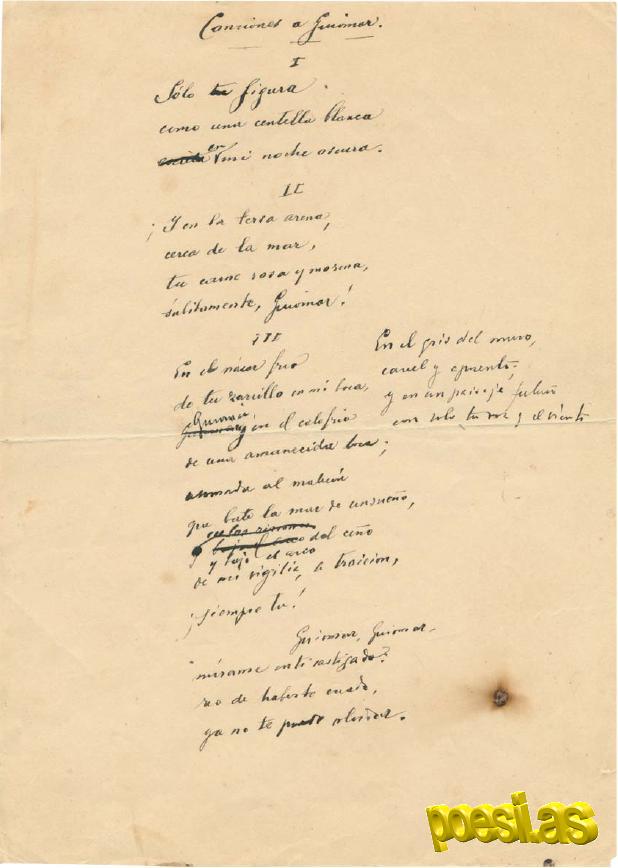 Canciones a Guiomar.
I
Sólo tu figura
como una centella blanca
escrita en mi noche oscura.
II
¡Y en la tersa arena,
cerca de la mar,
tu carne rosa y morena,
súbitamente, Guiomar!
III
En el nácar frío
de tu zarcillo en mi boca,
Guiomar, y en el calofrío
de una amanecida loca;
asomada al malecón
que bate la mar de un sueño,
y bajo el arco del ceño
de mi vigilia, a traición,
¡siempre tú!
Guiomar, Guiomar,
mírame en ti castigado:
reo de haberte creado,
ya no te puedo olvidar.
En el gris del muro,
cárcel y aposento,
y en un paisaje futuro
con solo tu voz y el viento
poesi.as